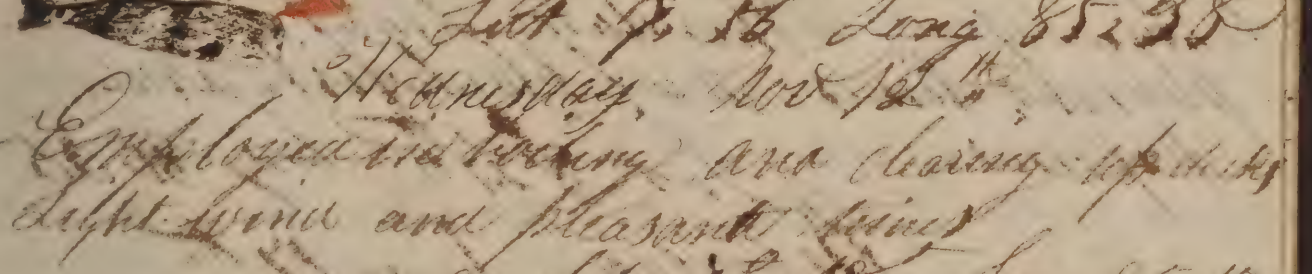 Latt 7, 56 Long 85,38
Wednesday Nov 12th
Employed in boiling and clearing up decks
Light wind and pleasant times